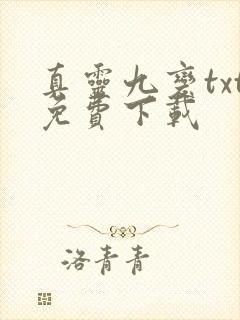 真靈九變txt
免費下載
洛青青